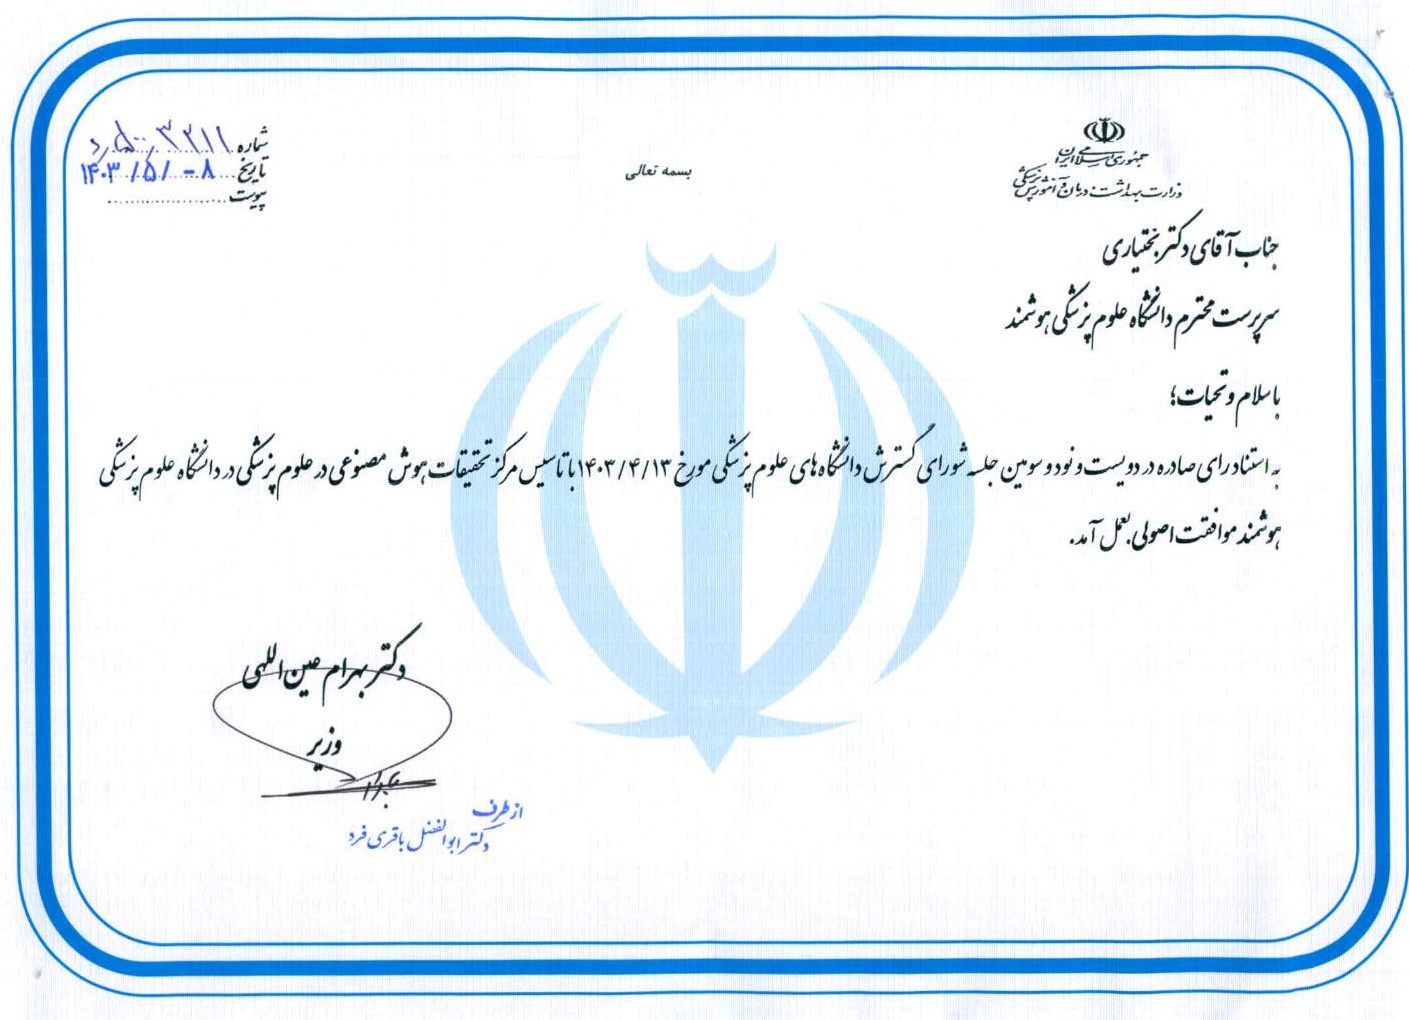 جمهوری اسلامی ایران
وزارت بهداشت، درمان و آموزش پزشکی
بسمه تعالی
شماره ۳۲۱۱/۵۰۰/د
تاریخ ۱۴۰۳/۵/-۸
پیوست
جناب آقای دکتر بختیاری
سرپرست محترم دانشگاه علوم پزشکی هوشمند
با سلام و تحیات؛
به استناد رای صادره در دویست و نود و سومین جلسه شورای گسترش دانشگاه های علوم پزشکی مورخ ۱۴۰۳/۴/۱۳ با تاسیس مرکز تحقیقات هوش مصنوعی در علوم پزشکی در دانشگاه علوم پزشکی
هوشمند موافقت اصولی بعمل آمد.
دکتر بهرام عین اللهی
وزیر
از طرف
دکتر ابوالفضل باقری فرد